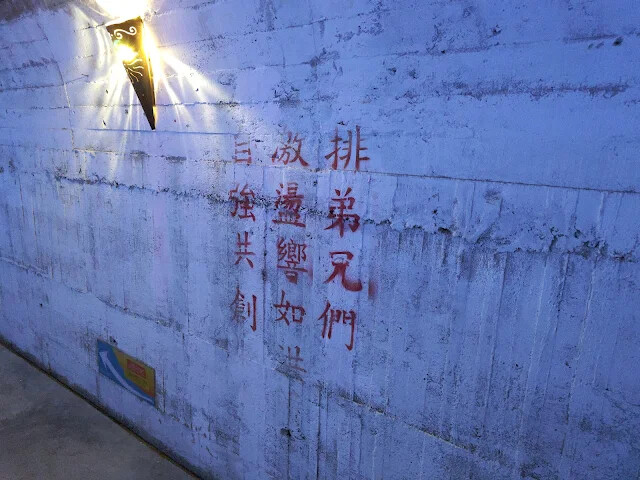 排弟兄們
激盪響如
自強共創